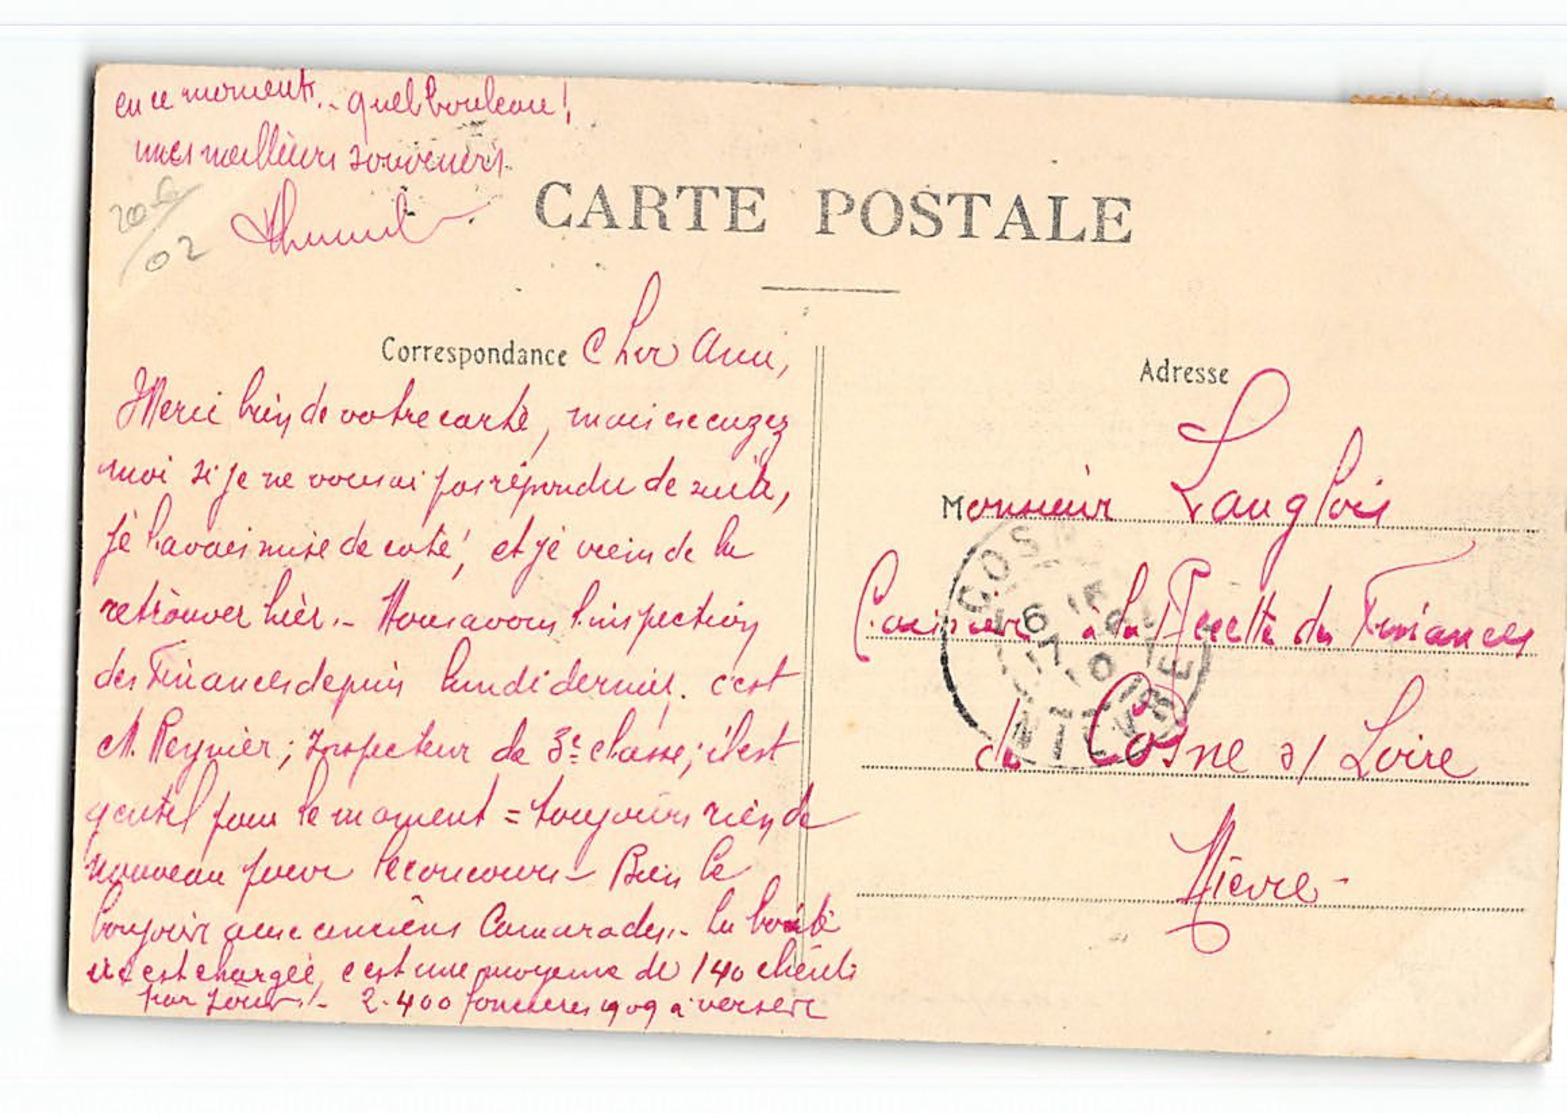 en ce moment.. quel bouleau!
mes meilleurs souvenirs
CARTE POSTALE
Correspondance
Cher Ami,
Merci bien de votre carte, mais excuzez
moi si je ne vous ai pas répondu de suite,
je l'avais mise de coté, et je viein de la
retrouver hièr.- Nous avons l'inspection
des Finances depuis lundi dernier. c'est
M. Reynier; Inspecteur de 3e classe; il est
gentil pour le moment = toujours rien de
nouveau pour le concours - Bien le
bonjour aux anciens Camarades.- La boite
ici est chargée, c'est une moyenne de 140 clients
par jour!- 2.400 foncières 1909 à verser
Adresse
Monsieur Langlois
Caissier à la Recette des Finances
de Cosne s/ Loire
Nièvre-
COSNE
NIEVRE